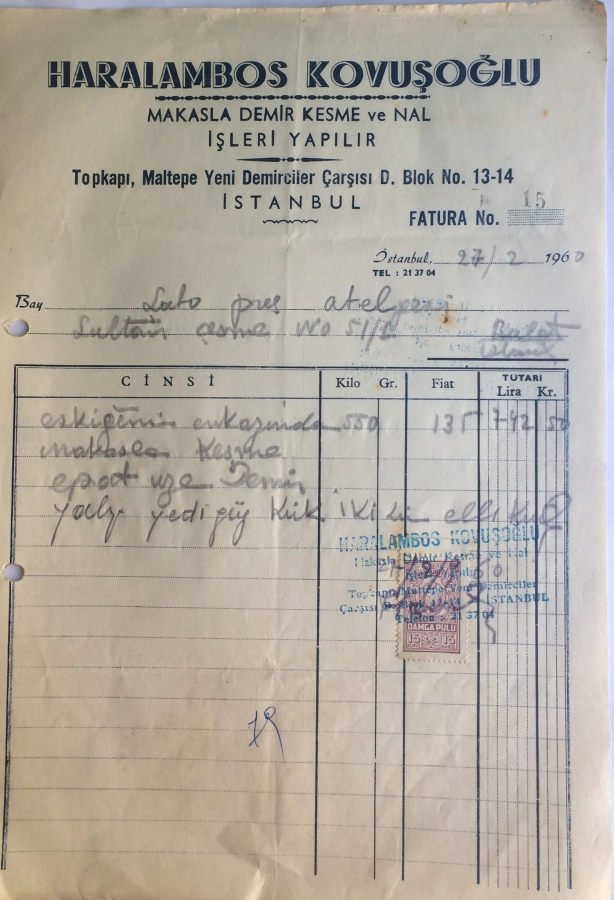 HARALAMBOS KOVUŞOĞLU
MAKASLA DEMİR KESME ve NAL
İŞLERİ YAPILIR
Topkapı, Maltepe Yeni Demirciler Çarşısı D. Blok No. 13-14
İSTANBUL
FATURA No. 15
İstanbul, 27/2 1960
TEL : 21 37 04
Bay Lato pres
Sultan çeşme No 51/1 Balat
CİNSİ Kilo Gr. Fiat TUTARI
Lira Kr.
550 135 742 50
makasla Kesme
Demir
yalz yedi yüz Kırk iki elli
HARALAMBOS KOVUŞOĞLU
Makasla Demir Kesme ve Nal
Topkapı, Maltepe Yeni Demirciler
Çarşısı İSTANBUL
Telefon : 21 37 04
DAMGA PULU
15 15